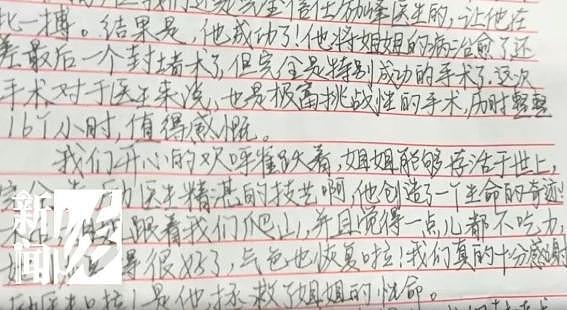 我们还是完全信任励峰医生的,让他在
此一搏。结果是,他成功了!他将姐姐的病治愈了还
差最后一个封堵术了,但完全是特别成功的手术了。这次
手术对于医生来说,也是极富挑战性的手术,历时整整
16个小时,值得感慨。
我们开心的欢呼雀跃着,姐姐能够存活于世上,
医生精湛的技艺啊,他创造了一个生命的奇迹!
跟着我们爬山,并且觉得一点儿都不吃力,
得很好了,气色也恢复啦!我们真的十分感谢
是他拯救了姐姐的性命。
新闻